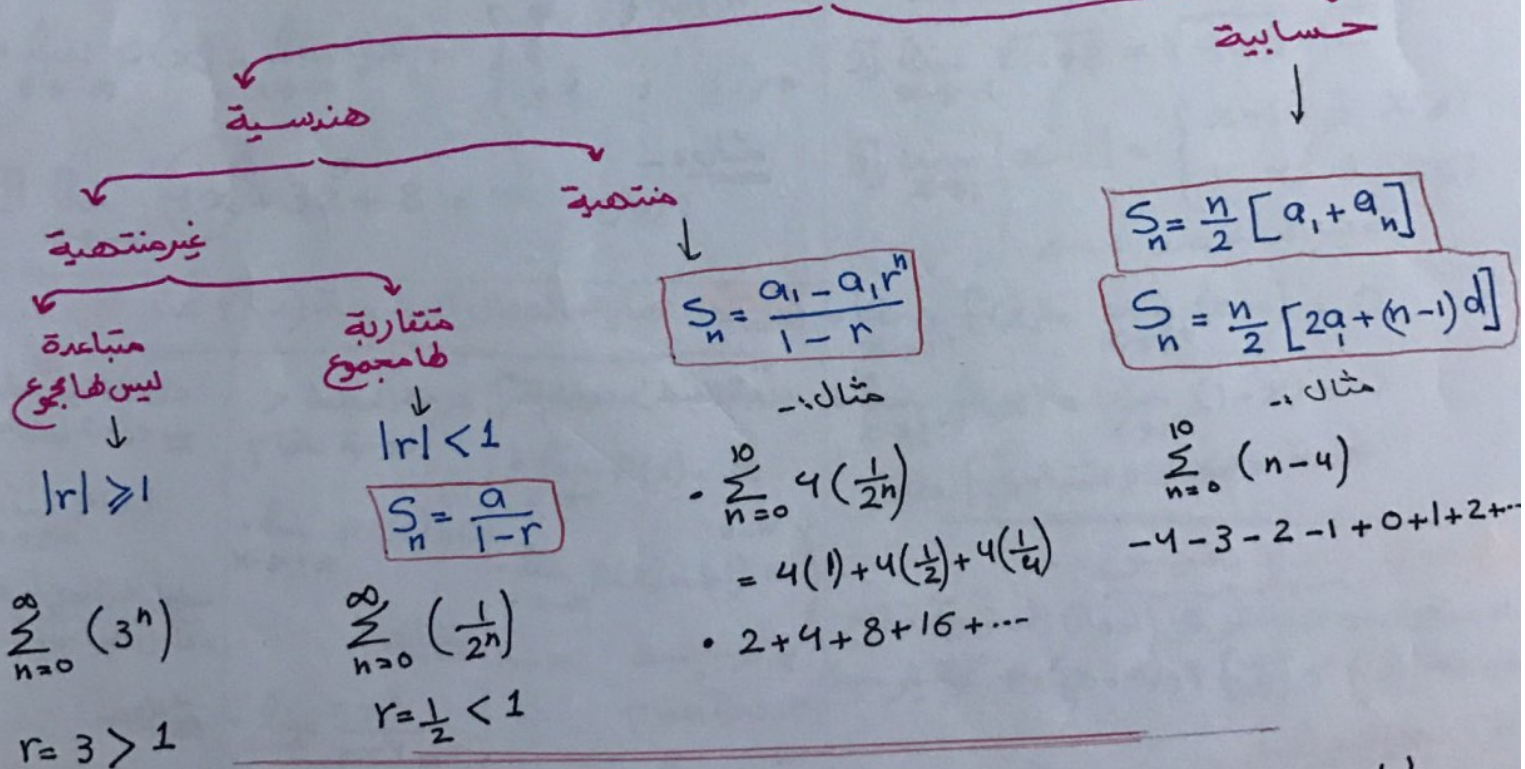 حسابية
↓
S_n = n/2 [a_1 + a_n]
S_n = n/2 [2a_1 + (n-1)d]
مثال :-
10
Σ (n-4)
n=0
-4-3-2-1+0+1+2+...
هندسية
منتهية
↓
S_n = (a_1 - a_1 r^n) / (1 - r)
مثال :-
10
• Σ 4(1/2^n)
n=0
= 4(1)+4(1/2)+4(1/4)
• 2+4+8+16+...
غير منتهية
متقاربة
لها مجموع
↓
|r| < 1
S_n = a / (1 - r)
∞
Σ (1/2^n)
n=0
r = 1/2 < 1
متباعدة
ليس لها مجموع
↓
|r| ≥ 1
∞
Σ (3^n)
n=0
r = 3 > 1